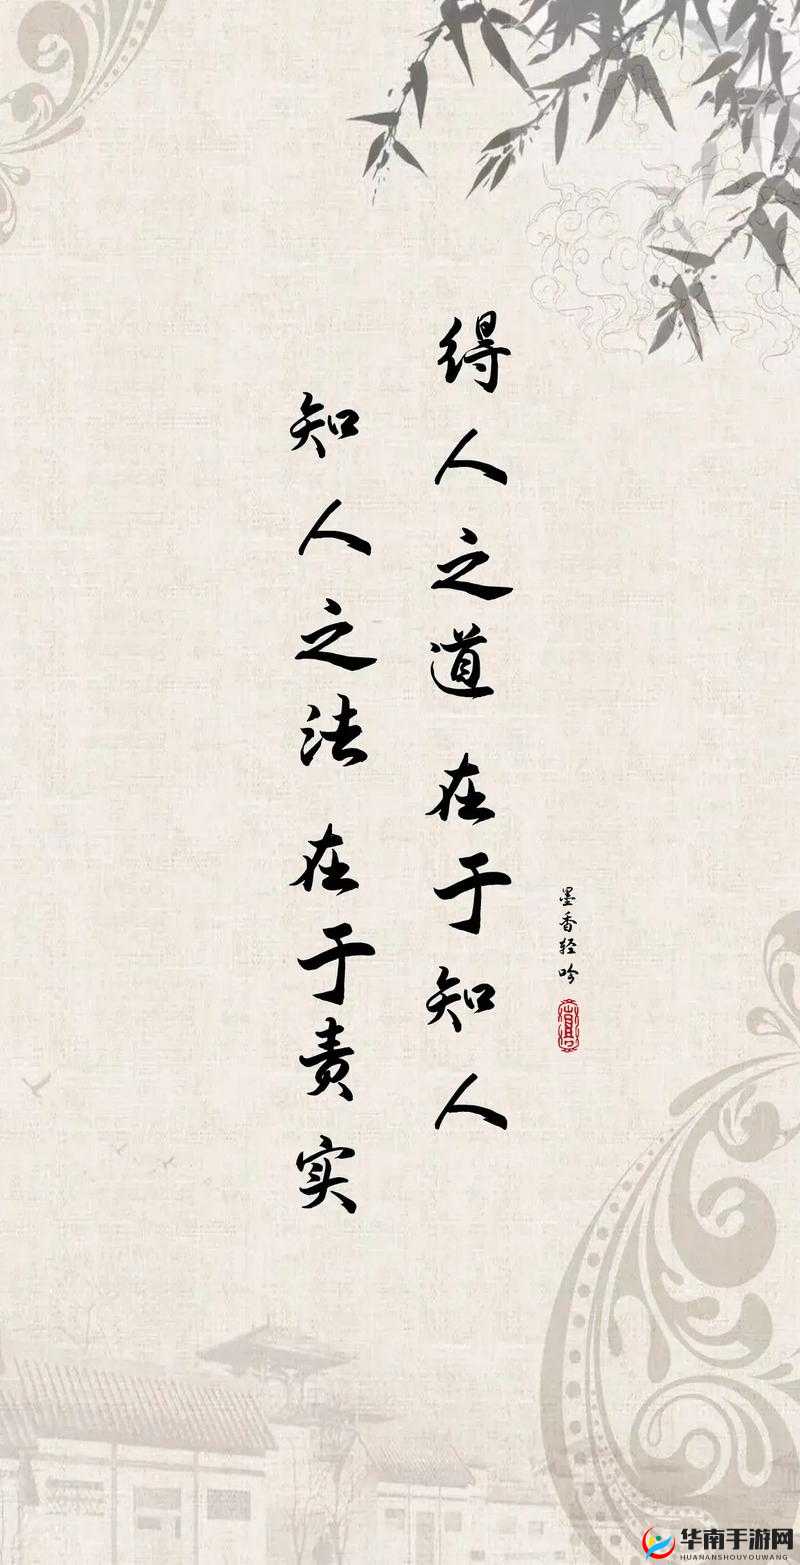 得人之道 在于知人
知人之法 在于责实
墨香轻吟
华南手游网
HUANANSHOUYOUWANG